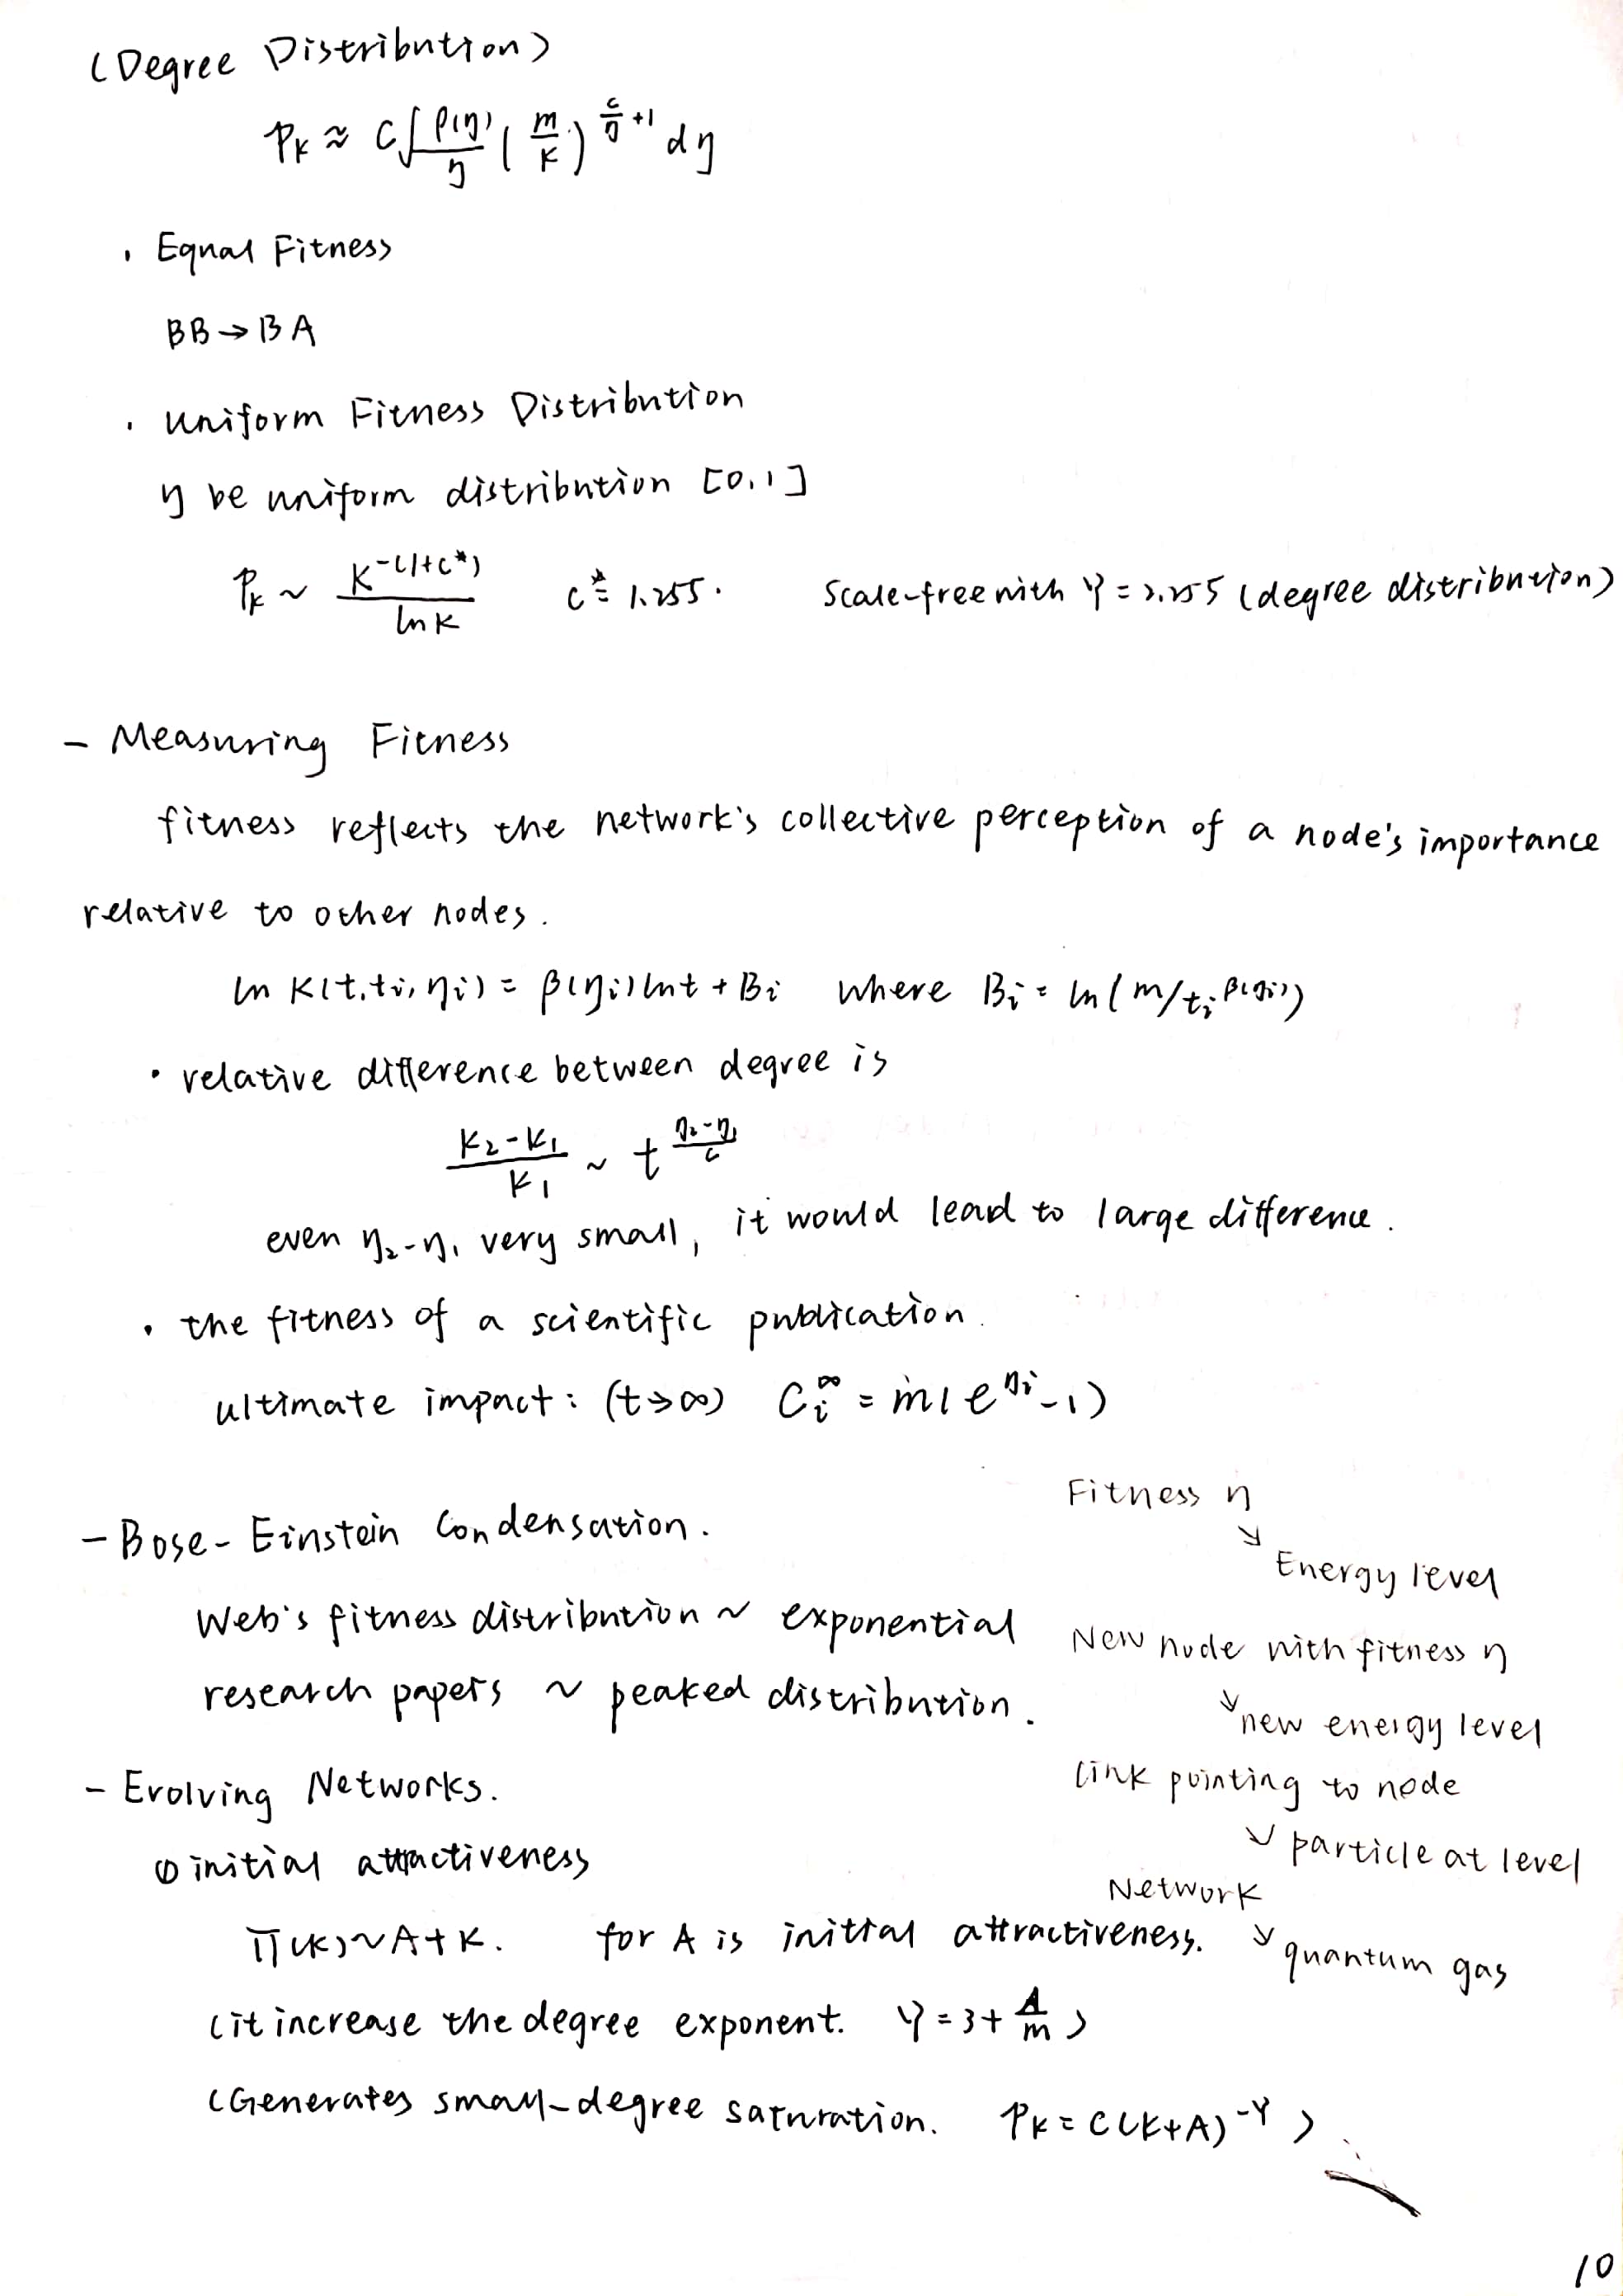 (Degree Distribution)
Pk ≈ C∫ ρ(η)/η (m/k)^(c/η +1) dη
· Equal Fitness
BB → BA
· Uniform Fitness Distribution
η be uniform distribution [0,1]
Pk ~ k^-(1+c*) / ln k   c* = 1.255.   Scale-free with γ = 2.255 (degree distribution)
- Measuring Fitness
fitness reflects the network's collective perception of a node's importance
relative to other nodes.
ln k(t,ti,ηi) = β(ηi) ln t + Bi   where Bi = ln(m/ti^β(ηi))
· relative difference between degree is
(k2-k1)/k1 ~ t^((η2-η1)/c)
even η2-η1 very small, it would lead to large difference.
· the fitness of a scientific publication.
ultimate impact: (t→∞)   Ci^∞ = m(e^ηi -1)
- Bose-Einstein Condensation.
Web's fitness distribution ~ exponential
research papers ~ peaked distribution.
Fitness η
↘ Energy level
New node with fitness η
↘ new energy level
Link pointing to node
↘ particle at level
Network
↘ quantum gas
- Evolving Networks.
① initial attractiveness
Π(k) ~ A+k.   for A is initial attractiveness.
(it increase the degree exponent. γ = 3+ A/m)
(Generates small-degree saturation.   Pk = C(k+A)^-γ)
10